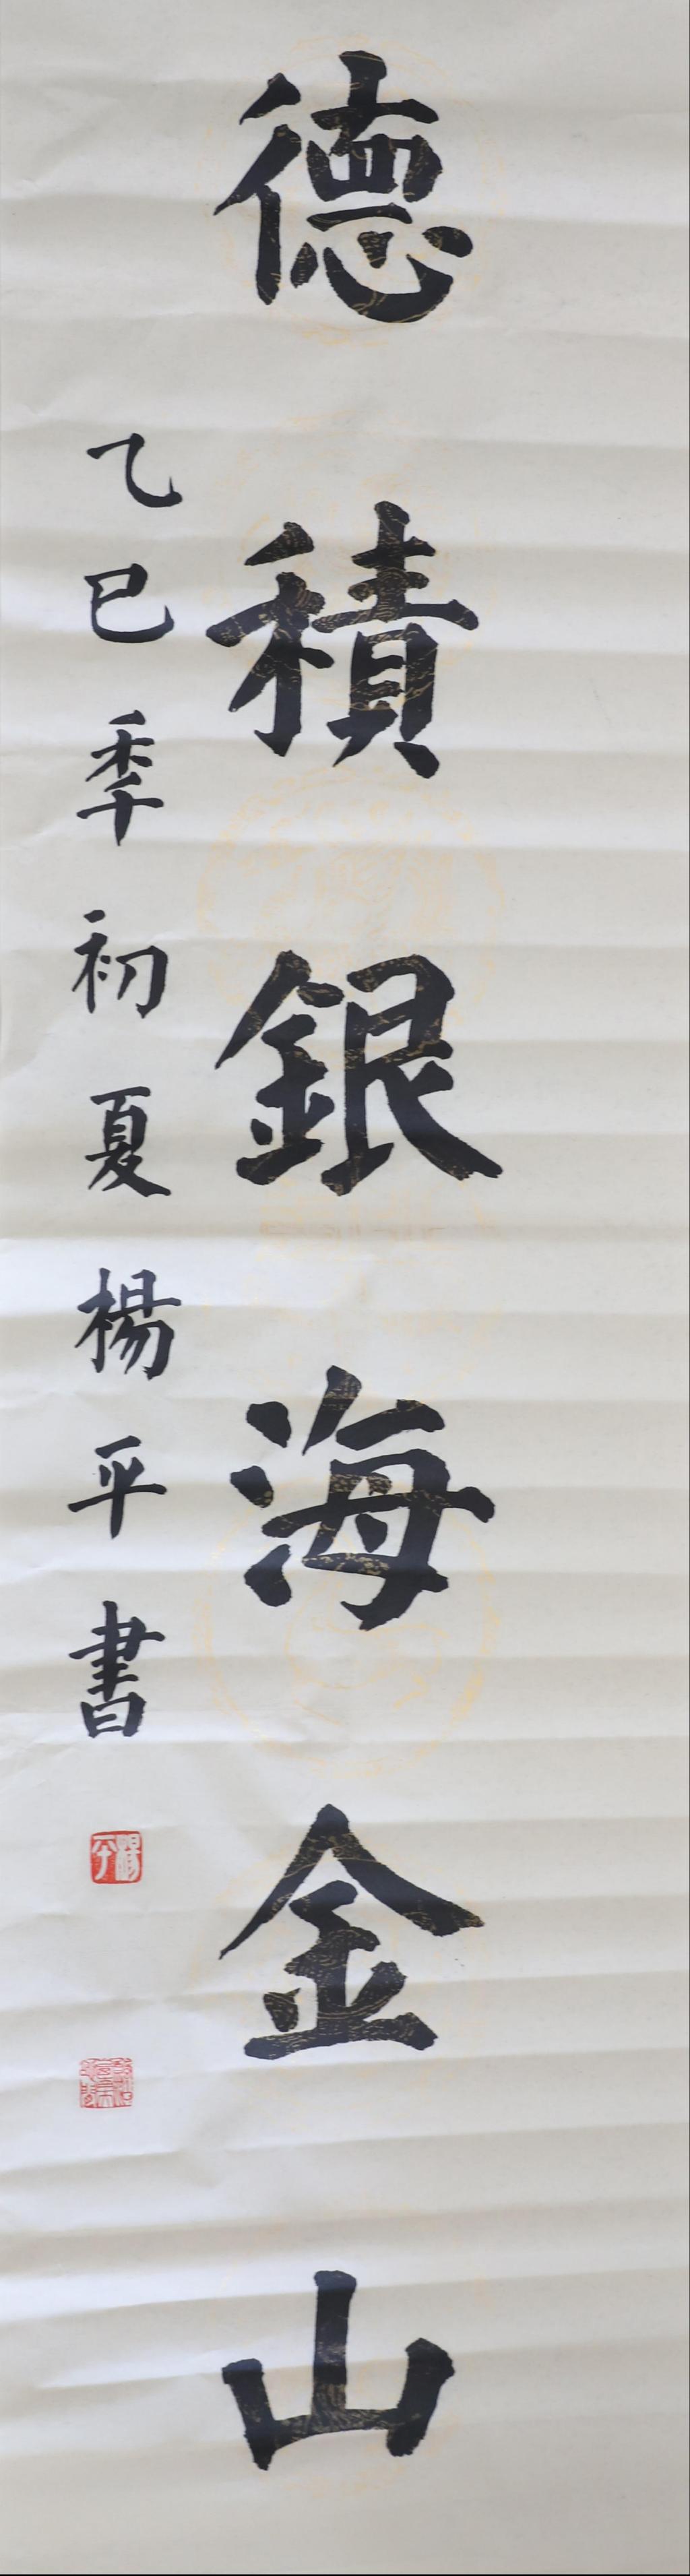 德積銀海金山
乙巳季初夏楊平書
楊平